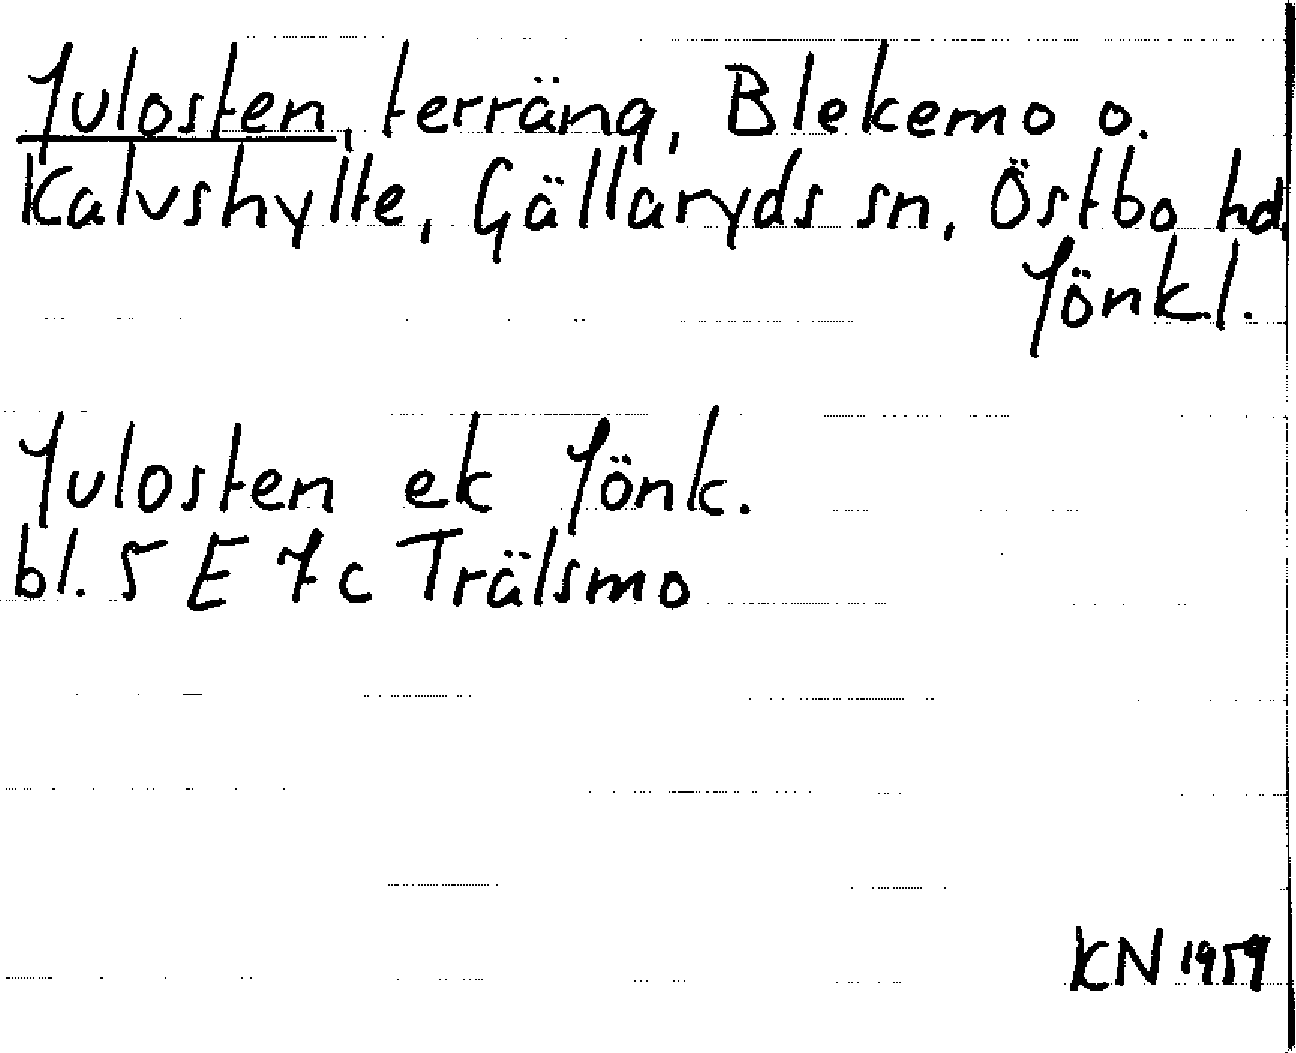 Julosten, terräng, Blekemo o.
Kalvshylte, Gällaryds sn, Östbo hd,
Jönkl.
Julosten ek Jönk.
bl. 5 E 7c Trälsmo
KN 1959